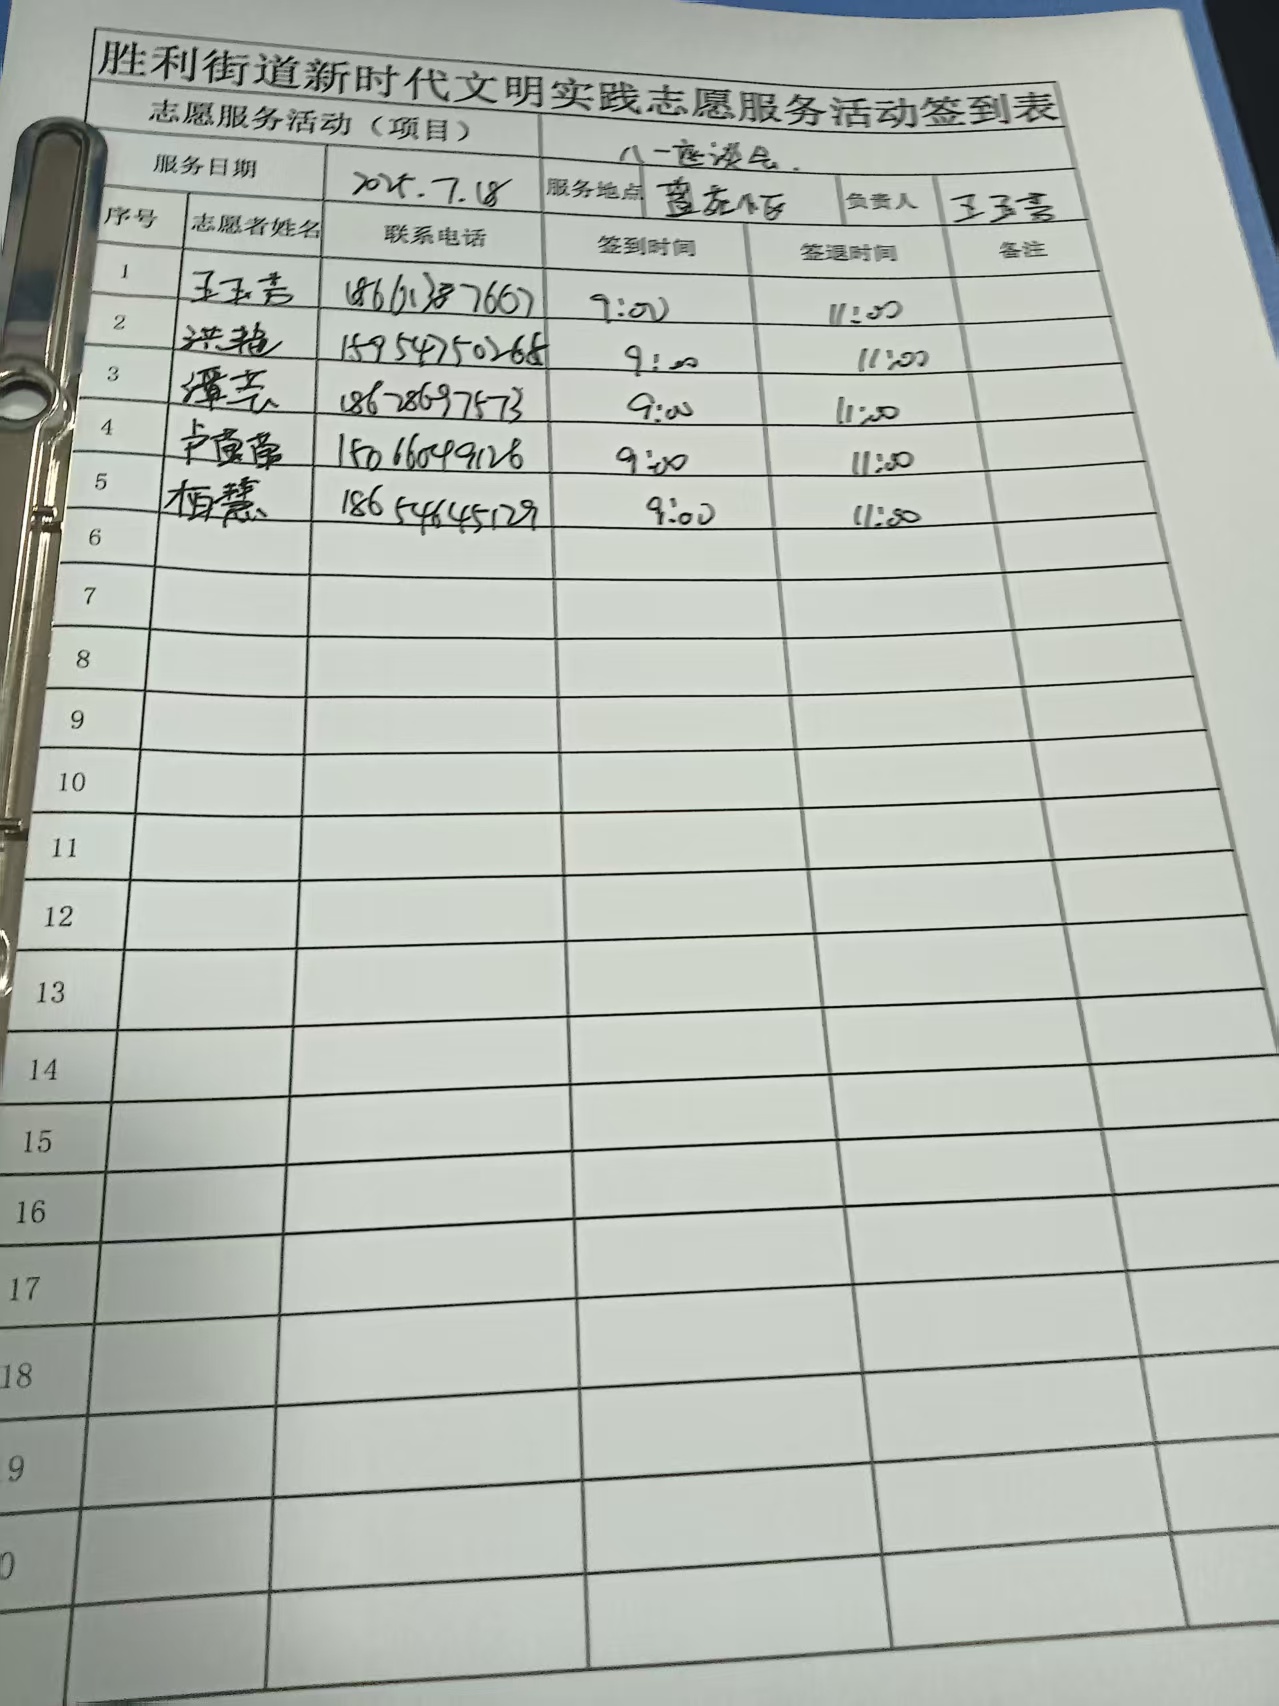 胜利街道新时代文明实践志愿服务活动签到表
志愿服务活动（项目） 八一座谈会.
服务日期 2025.7.18 服务地点 负责人 王玉芳
序号 志愿者姓名 联系电话 签到时间 签退时间 备注
1 王玉芳 18661387667 9:00 11:00
2 洪艳 15954750268 9:00 11:00
3 谭芸 18678697573 9:00 11:00
4 卢茵茵 15066049128 9:00 11:00
5 柏慧 18654645129 9:00 11:00
6
7
8
9
10
11
12
13
14
15
16
17
18
9
0